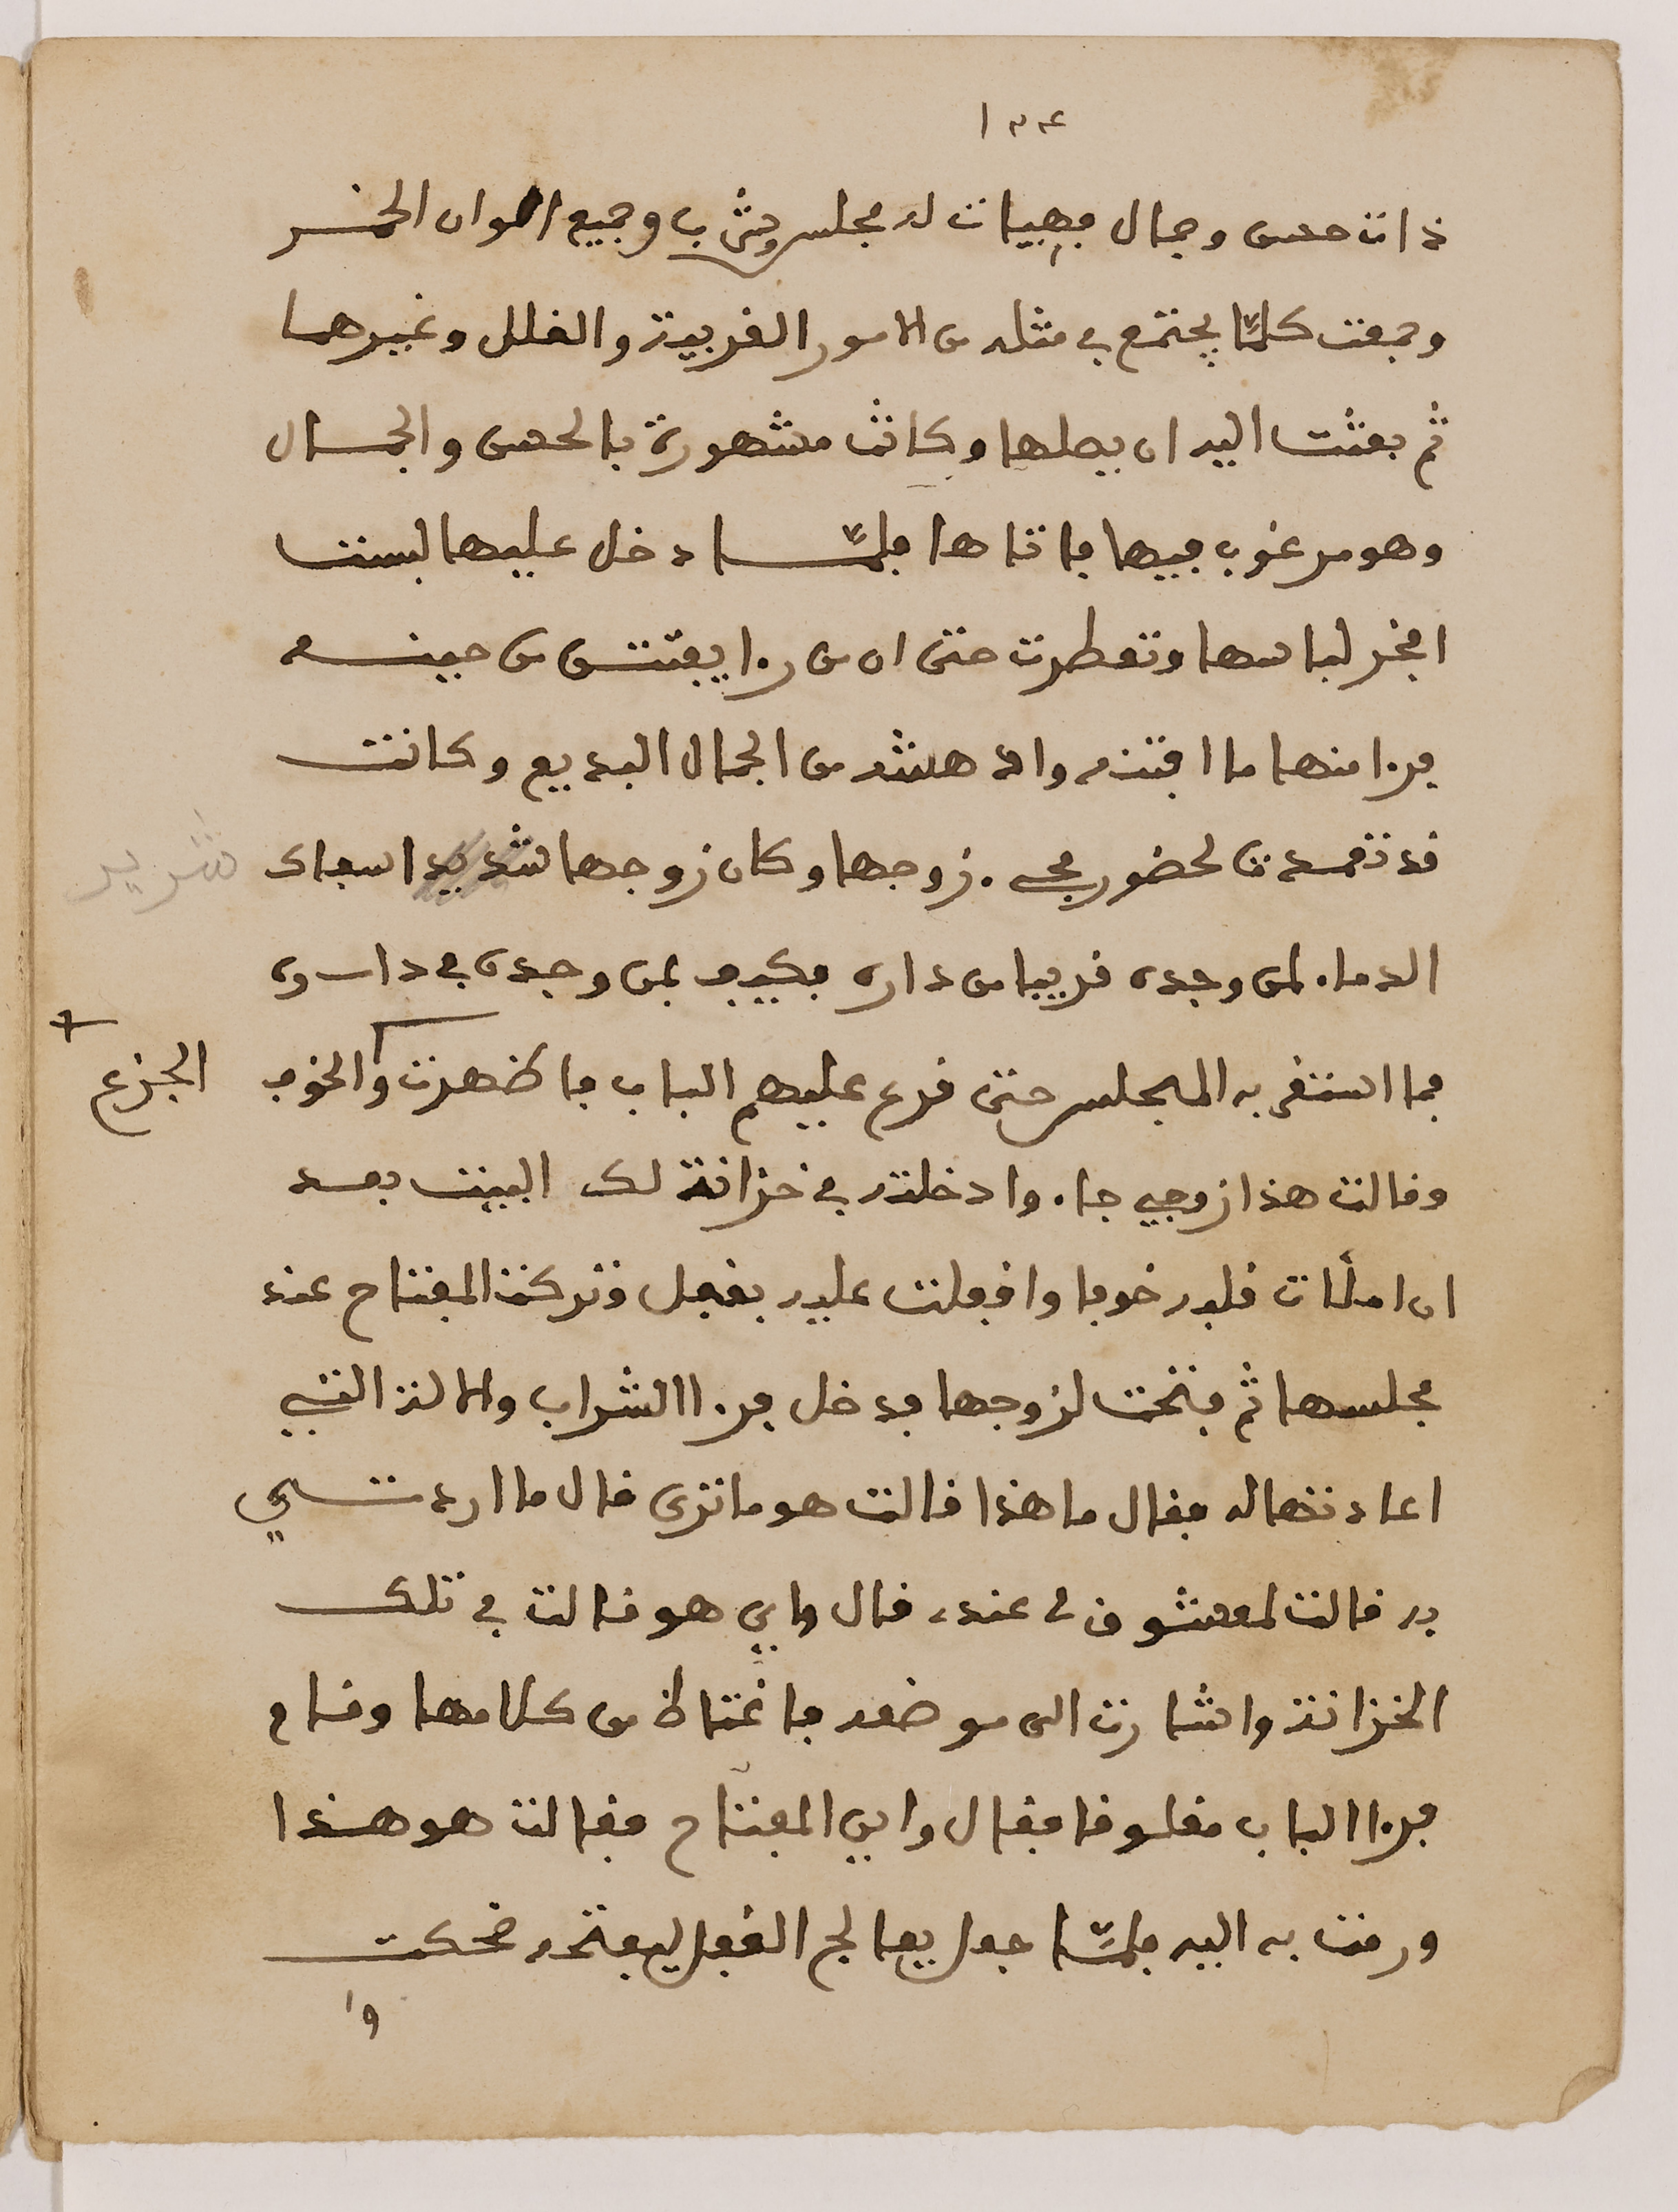 ١٣٤
ذات حسن وجمال فهيات له مجلس وشرب وجميع الوان الخمر
وجمعت كلما يجتمع في مثله من الامور الغريبة والغلل وغيرها
ثم بعثت اليه ان يصلها وكانت مشهورة بالحسن والجمال
وهو مرغوب فيها فاتاها فلما دخل عليها لبست
افخر لباسها وتعطرت حتى ان من رءا يفتتن من حينه
فرءا منها ما افتنه وادهشه من الجمال البديع وكانت
قد تعمدت لحضور مجيء زوجها وكان زوجها شديد اسفاك
شديد
الدماء لمن وجده قريبا من داره فكيف بمن وجده في داره
فما استقر به المجلس حتى قرع عليهم الباب فاظهرت والخوف
الجزع
وقالت هذا زوجي جاء وادخلته في خزانة لك البيت بعد
ان املأت قلبه خوفا واقفلت عليه بقفل وتركت المفتاح عند
مجلسها ثم فتحت لزوجها فدخل فرءا الشراب والالة التي
اعادتها له فقال ما هذا قالت هو ما ترى قال ما اردتي
به قالت لمعشوق لي عنده قال واين هو قالت في تلك
الخزانة واشارت الى موضعه فاغتاظ من كلامها وقام
فرءا الباب مغلوقا فقال واين المفتاح فقالت هو هذا
ورمت به اليه فلما جعل يعالج القفل ليفتحه ضحكت
وا